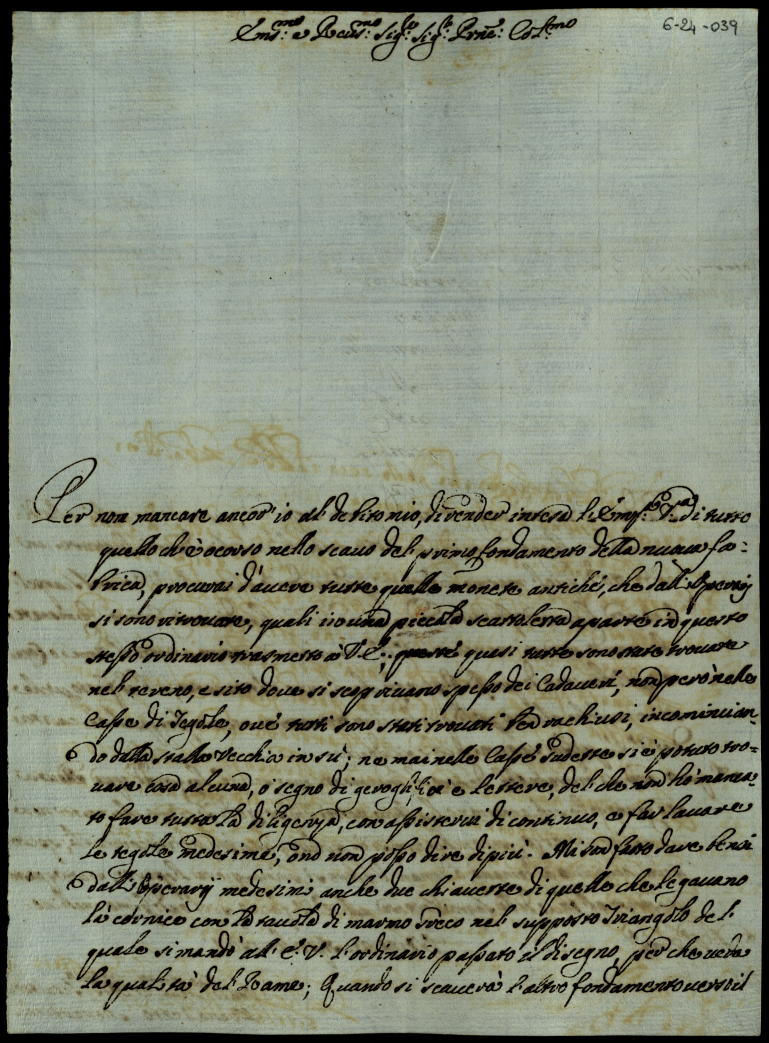 6-24-039
Em.mo e Rev.mo Sig.r Sig.r Prne: Col.mo
Per non mancare ancor' io al debito mio, di render intesa l' Em.za V.ra di tutto
quello ch'è ocorso nello scavo del primo fondamento della nuova fa-
brica, procurai d'avere tutte quelle monete antiche, che dall' Operarij
si sono ritrovate, quali in una piccola scattoletta aparte in questo
stesso ordinario trasmetto à V. E.; queste quasi tutte sono state trovate
nel tereno, e sito dove si scoprivano spesso dei Cadaveri, non però nelle
Casse di Tegole, ove tutti sono stati trovati ben rachiusi, incomincian-
do dalla stalla Vecchia in sù; ne mai nelle Casse sudette si è potuto tro-
vare cosa alcuna, ò segno di geroglifici è lettere, del che non hò manca-
to fare tutta la diligenza, con assistervi di continuo, e far lavare
le tegole medesime, ond non posso dire di più. Mi son fatto dare bensi
dall' Operarij medesimi anche due chiavette di quelle che legavano
la cornice con la tavola di marmo Greco nel supposto Triangolo del
quale si mandò all' E. V. l'ordinario passato il disegno, perche veda
la qualità del Rame; Quando si scaverà l'altro fondamento verso il